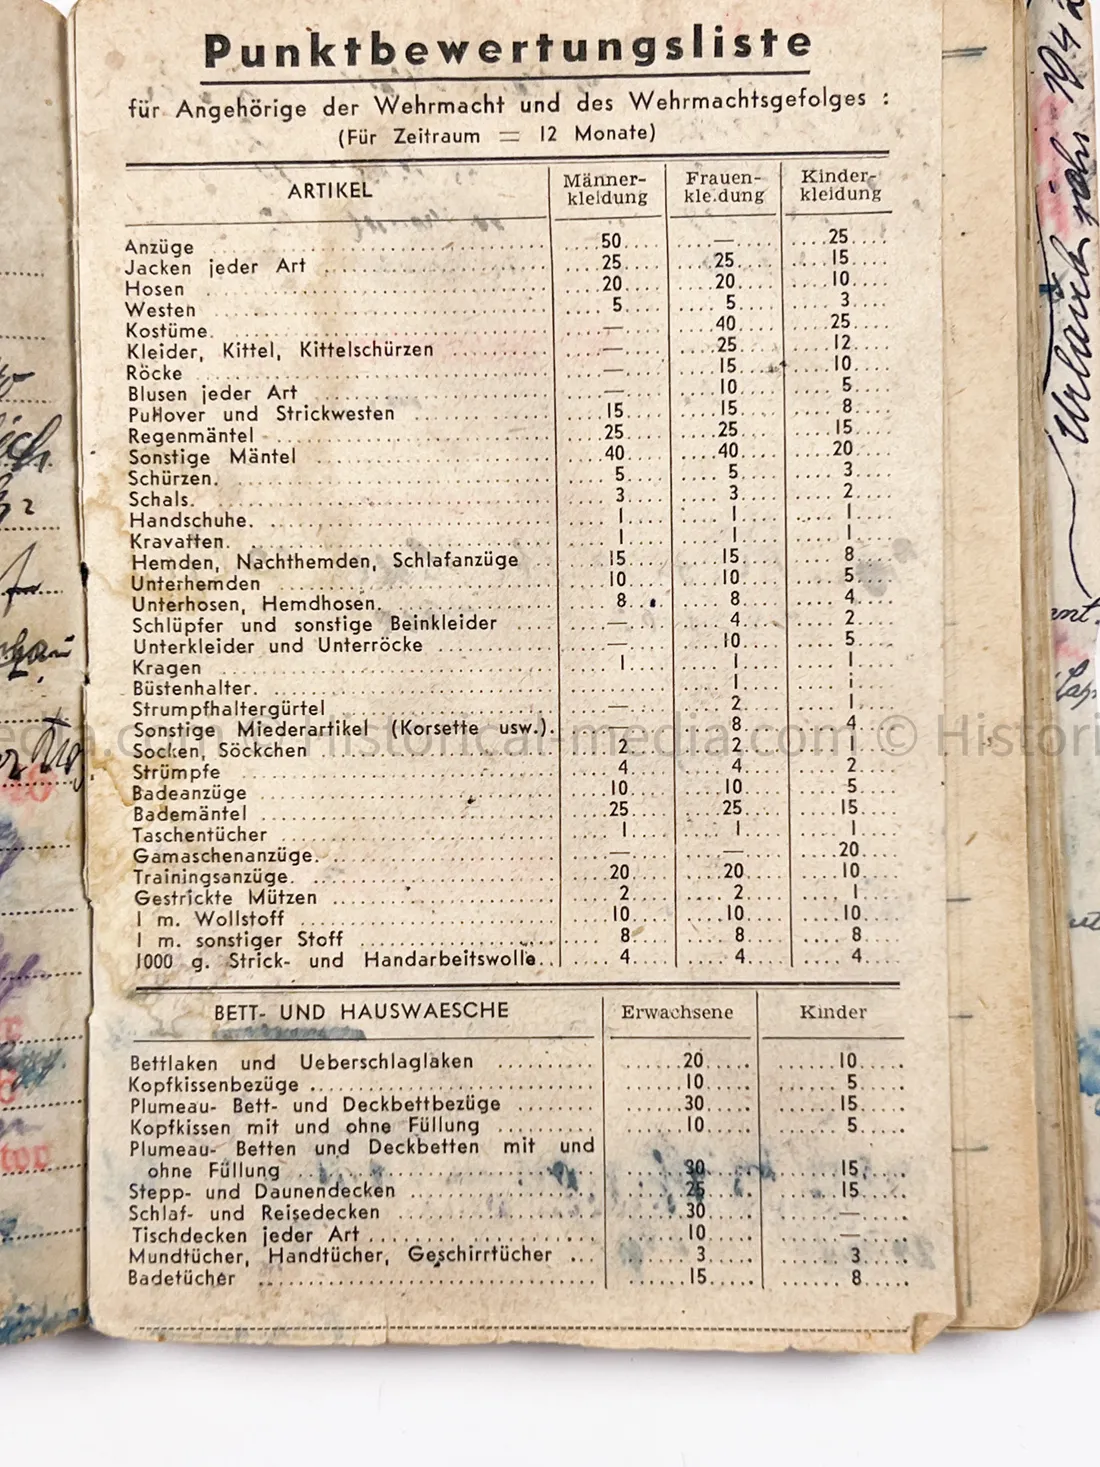 Punktbewertungsliste
für Angehörige der Wehrmacht und des Wehrmachtsgefolges :
(Für Zeitraum = 12 Monate)
ARTIKEL Männer-kleidung Frauen-kleidung Kinder-kleidung
Anzüge 50 — 25
Jacken jeder Art 25 25 15
Hosen 20 20 10
Westen 5 5 3
Kostüme. — 40 25
Kleider, Kittel, Kittelschürzen — 25 12
Röcke — 15 10
Blusen jeder Art — 10 5
Pullover und Strickwesten 15 15 8
Regenmäntel 25 25 15
Sonstige Mäntel 40 40 20
Schürzen. 5 5 3
Schals. 3 3 2
Handschuhe. 1 1 1
Kravatten. 1 1 1
Hemden, Nachthemden, Schlafanzüge 15 15 8
Unterhemden 10 10 5
Unterhosen, Hemdhosen. 8 8 4
Schlüpfer und sonstige Beinkleider — 4 2
Unterkleider und Unterröcke — 10 5
Kragen 1 1 1
Büstenhalter. 1 1
Strumpfhaltergürtel — 2 1
Sonstige Miederartikel (Korsette usw.). — 8 4
Socken, Söckchen 2 2 1
Strümpfe 4 4 2
Badeanzüge 10 10 5
Bademäntel 25 25 15
Taschentücher 1 1 1
Gamaschenanzüge. — — 20
Trainingsanzüge. 20 20 10
Gestrickte Mützen 2 2 1
1 m. Wollstoff 10 10 10
1 m. sonstiger Stoff 8 8 8
1000 g. Strick- und Handarbeitswolle. 4 4 4
BETT- UND HAUSWAESCHE Erwachsene Kinder
Bettlaken und Ueberschlaglaken 20 10
Kopfkissenbezüge 10 5
Plumeau- Bett- und Deckbettbezüge 30 15
Kopfkissen mit und ohne Füllung 10 5
Plumeau- Betten und Deckbetten mit und
ohne Füllung 30 15
Stepp- und Daunendecken 25 15
Schlaf- und Reisedecken 30 —
Tischdecken jeder Art 10 —
Mundtücher, Handtücher, Geschirrtücher 3 3
Badetücher 15 8
Historical-media.com ©
Urlaub